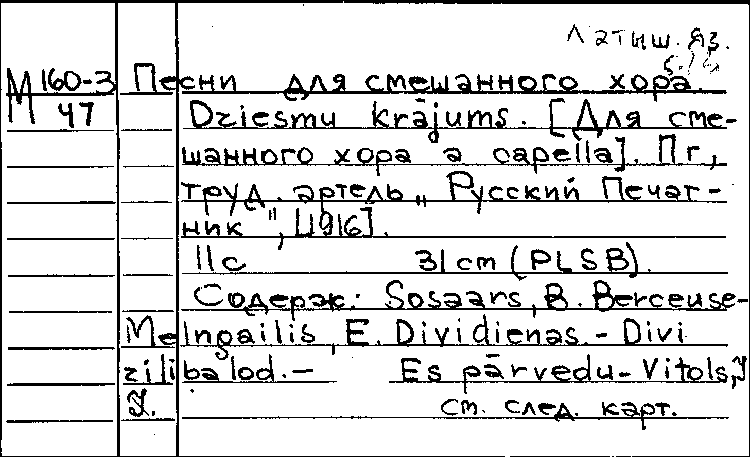 Латыш. яз.
М 160-3 Песни для смешанного хора.
47 Dziesmu krājums. [Для сме-
шанного хора a capella]. Пг.,
труд. артель „Русский Печат-
ник", [1916].
11с 31 cm (PLSB).
Содерж: Sosaars, B. Berceuse-
Melngailis, E. Dividienas. - Divi
zili balod. - Es pārvedu - Vitols, J
J. см. след. карт.